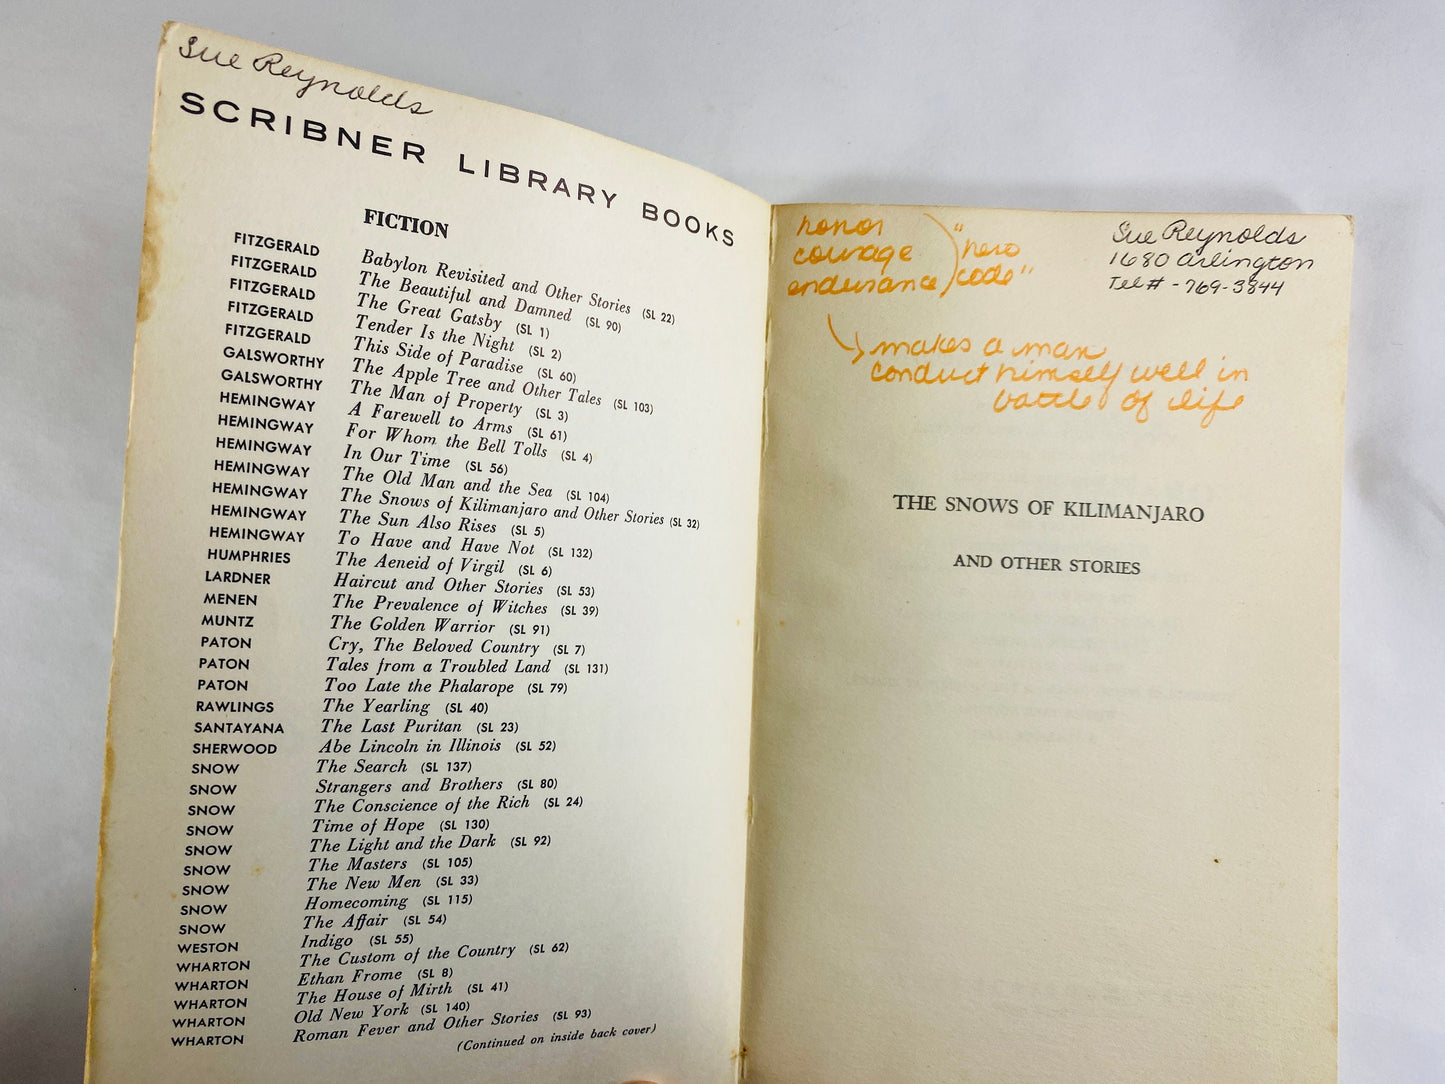 Sue Reynolds
SCRIBNER LIBRARY BOOKS
FICTION
FITZGERALD Babylon Revisited and Other Stories (SL 22)
FITZGERALD The Beautiful and Damned (SL 90)
FITZGERALD The Great Gatsby (SL 1)
FITZGERALD Tender Is the Night (SL 2)
FITZGERALD This Side of Paradise (SL 60)
GALSWORTHY The Apple Tree and Other Tales (SL 103)
GALSWORTHY The Man of Property (SL 3)
HEMINGWAY A Farewell to Arms (SL 61)
HEMINGWAY For Whom the Bell Tolls (SL 4)
HEMINGWAY In Our Time (SL 56)
HEMINGWAY The Old Man and the Sea (SL 104)
HEMINGWAY The Snows of Kilimanjaro and Other Stories (SL 32)
HEMINGWAY The Sun Also Rises (SL 5)
HEMINGWAY To Have and Have Not (SL 132)
HUMPHRIES The Aeneid of Virgil (SL 6)
LARDNER Haircut and Other Stories (SL 53)
MENEN The Prevalence of Witches (SL 39)
MUNTZ The Golden Warrior (SL 91)
PATON Cry, The Beloved Country (SL 7)
PATON Tales from a Troubled Land (SL 131)
PATON Too Late the Phalarope (SL 79)
RAWLINGS The Yearling (SL 40)
SANTAYANA The Last Puritan (SL 23)
SHERWOOD Abe Lincoln in Illinois (SL 52)
SNOW The Search (SL 137)
SNOW Strangers and Brothers (SL 80)
SNOW The Conscience of the Rich (SL 24)
SNOW Time of Hope (SL 130)
SNOW The Light and the Dark (SL 92)
SNOW The Masters (SL 105)
SNOW The New Men (SL 33)
SNOW Homecoming (SL 115)
SNOW The Affair (SL 54)
WESTON Indigo (SL 55)
WHARTON The Custom of the Country (SL 62)
WHARTON Ethan Frome (SL 8)
WHARTON The House of Mirth (SL 41)
WHARTON Old New York (SL 140)
WHARTON Roman Fever and Other Stories (SL 93)
(Continued on inside back cover)
honor
courage
endurance
"hero
code"
→ makes a man
conduct himself well in
battle of life
Sue Reynolds
1680 Arlington
Tel # - 769-3844
THE SNOWS OF KILIMANJARO
AND OTHER STORIES